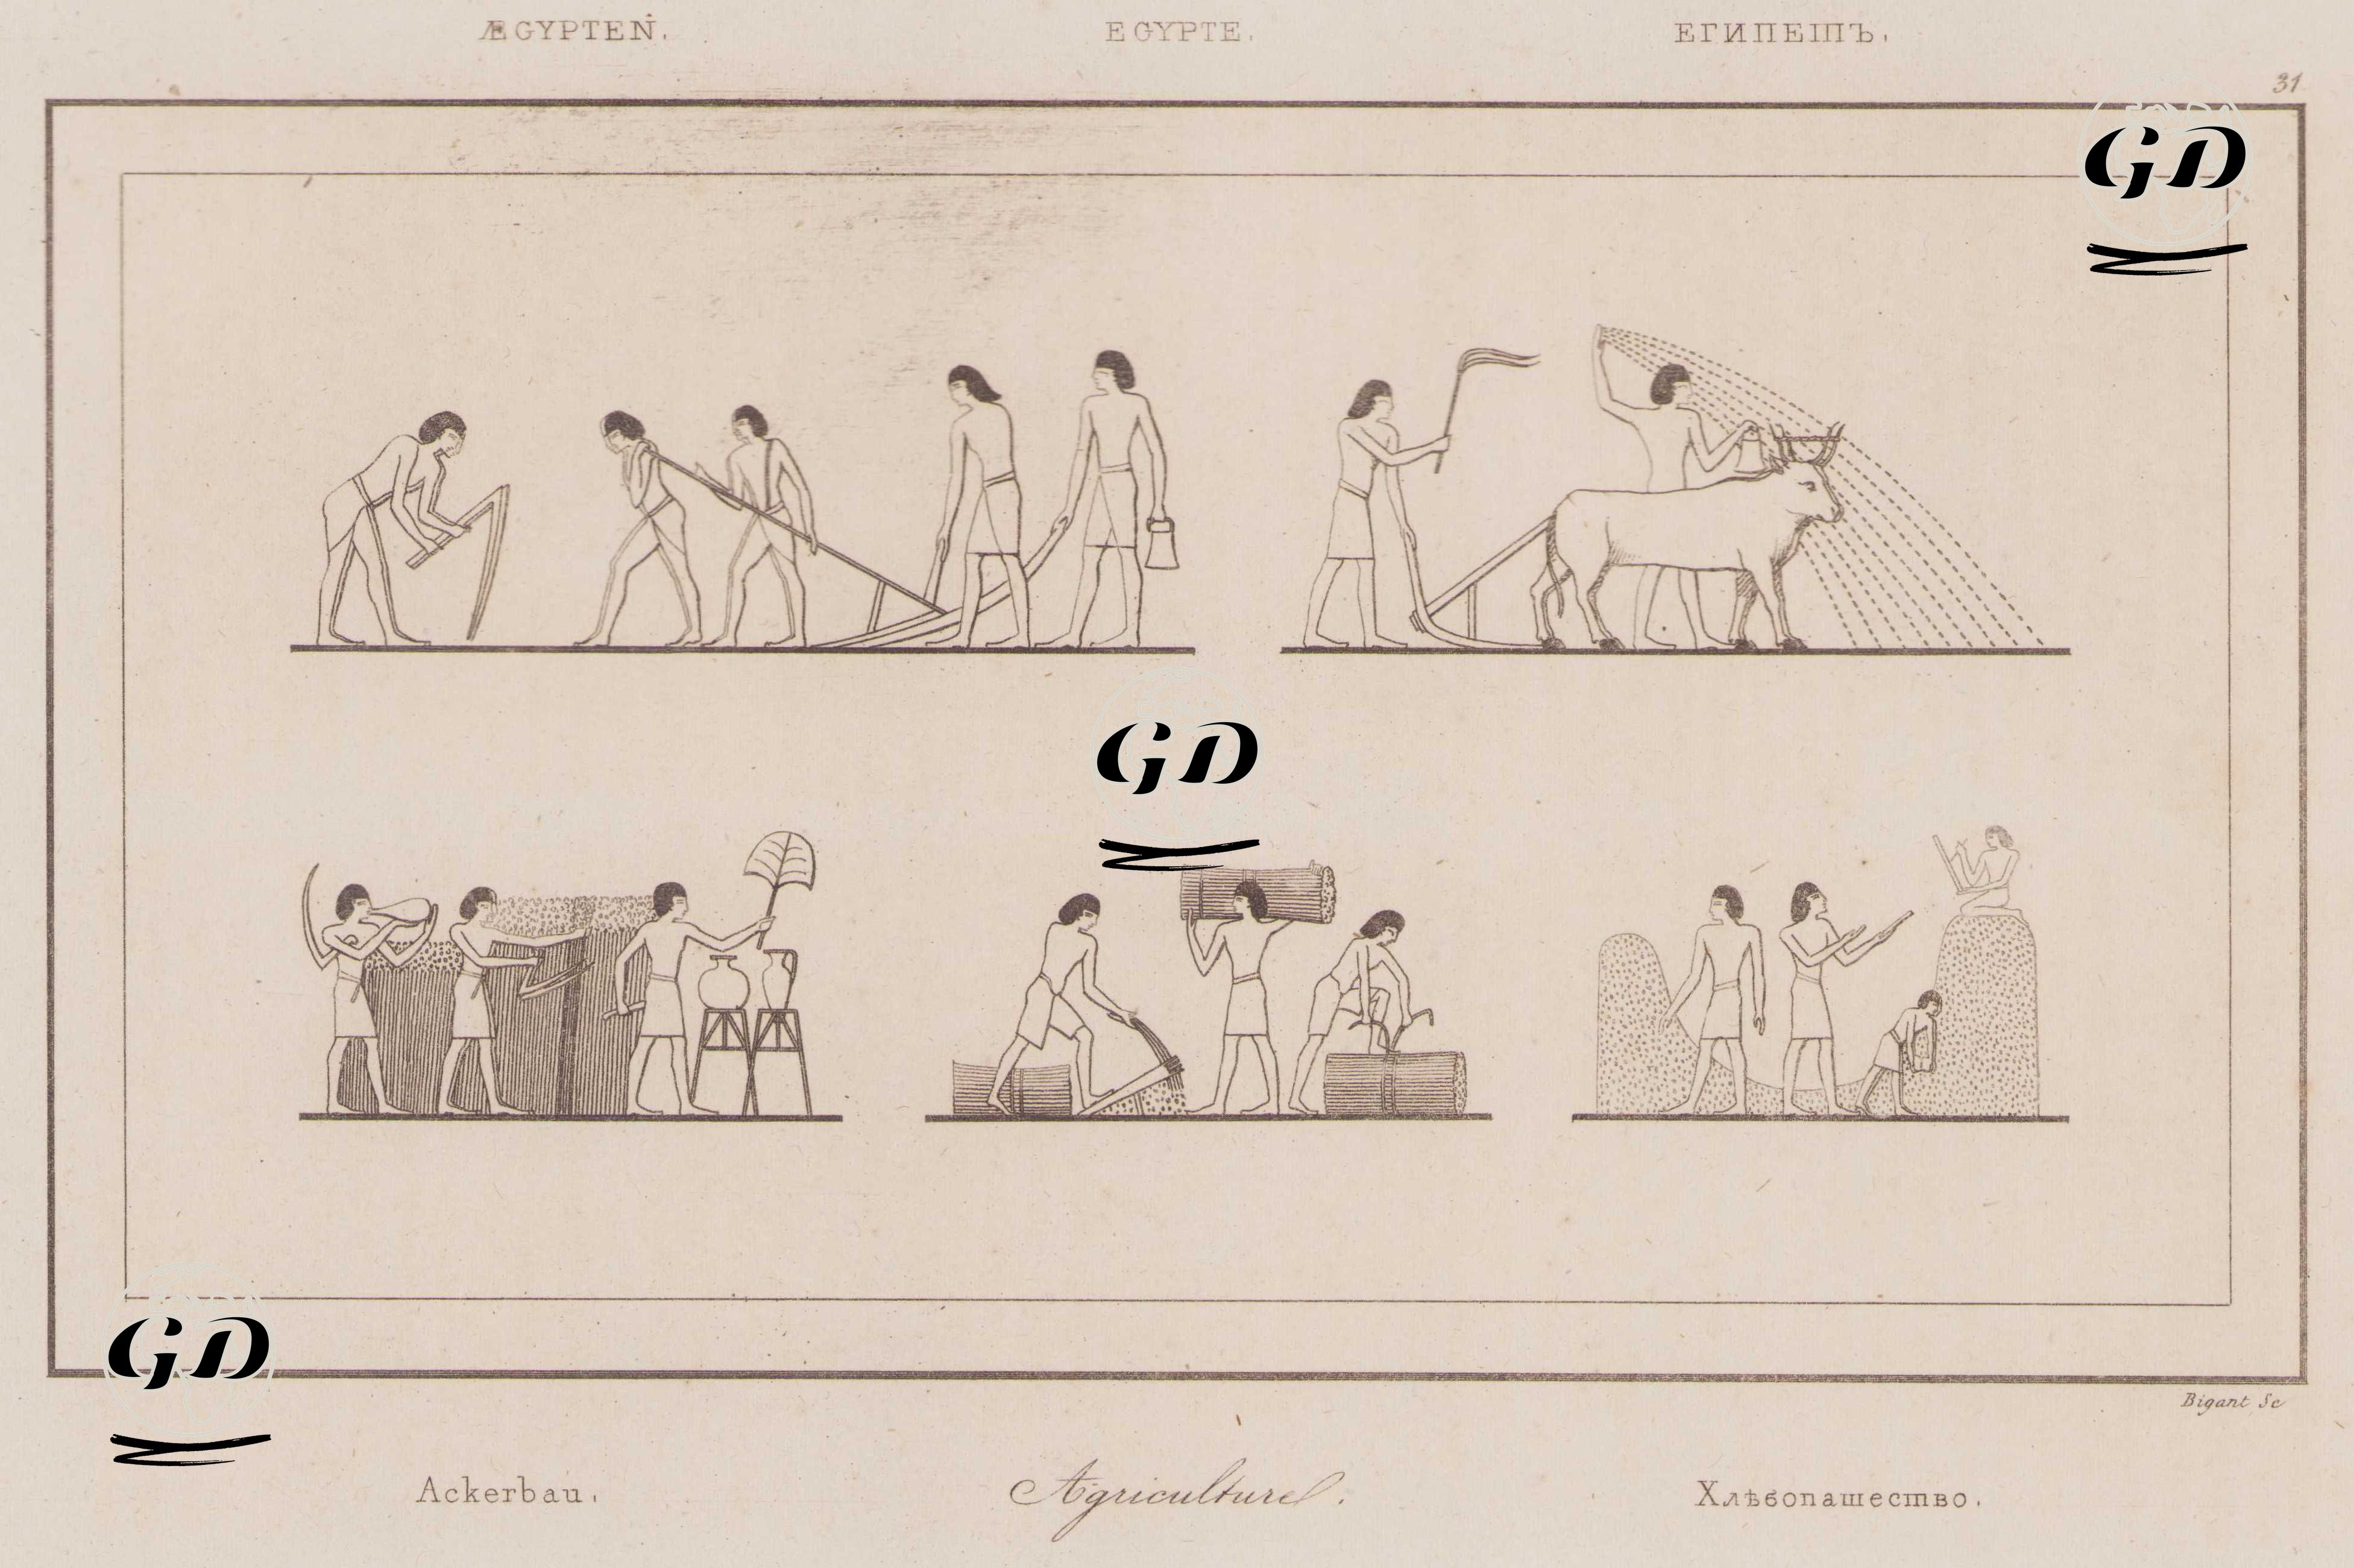 ÆGYPTEN.
EGYPTE.
ЕГИПЕТЪ.
31
GD
GD
GD
Bigant Sc
Ackerbau.
Agriculture.
Хлѣбопашество.